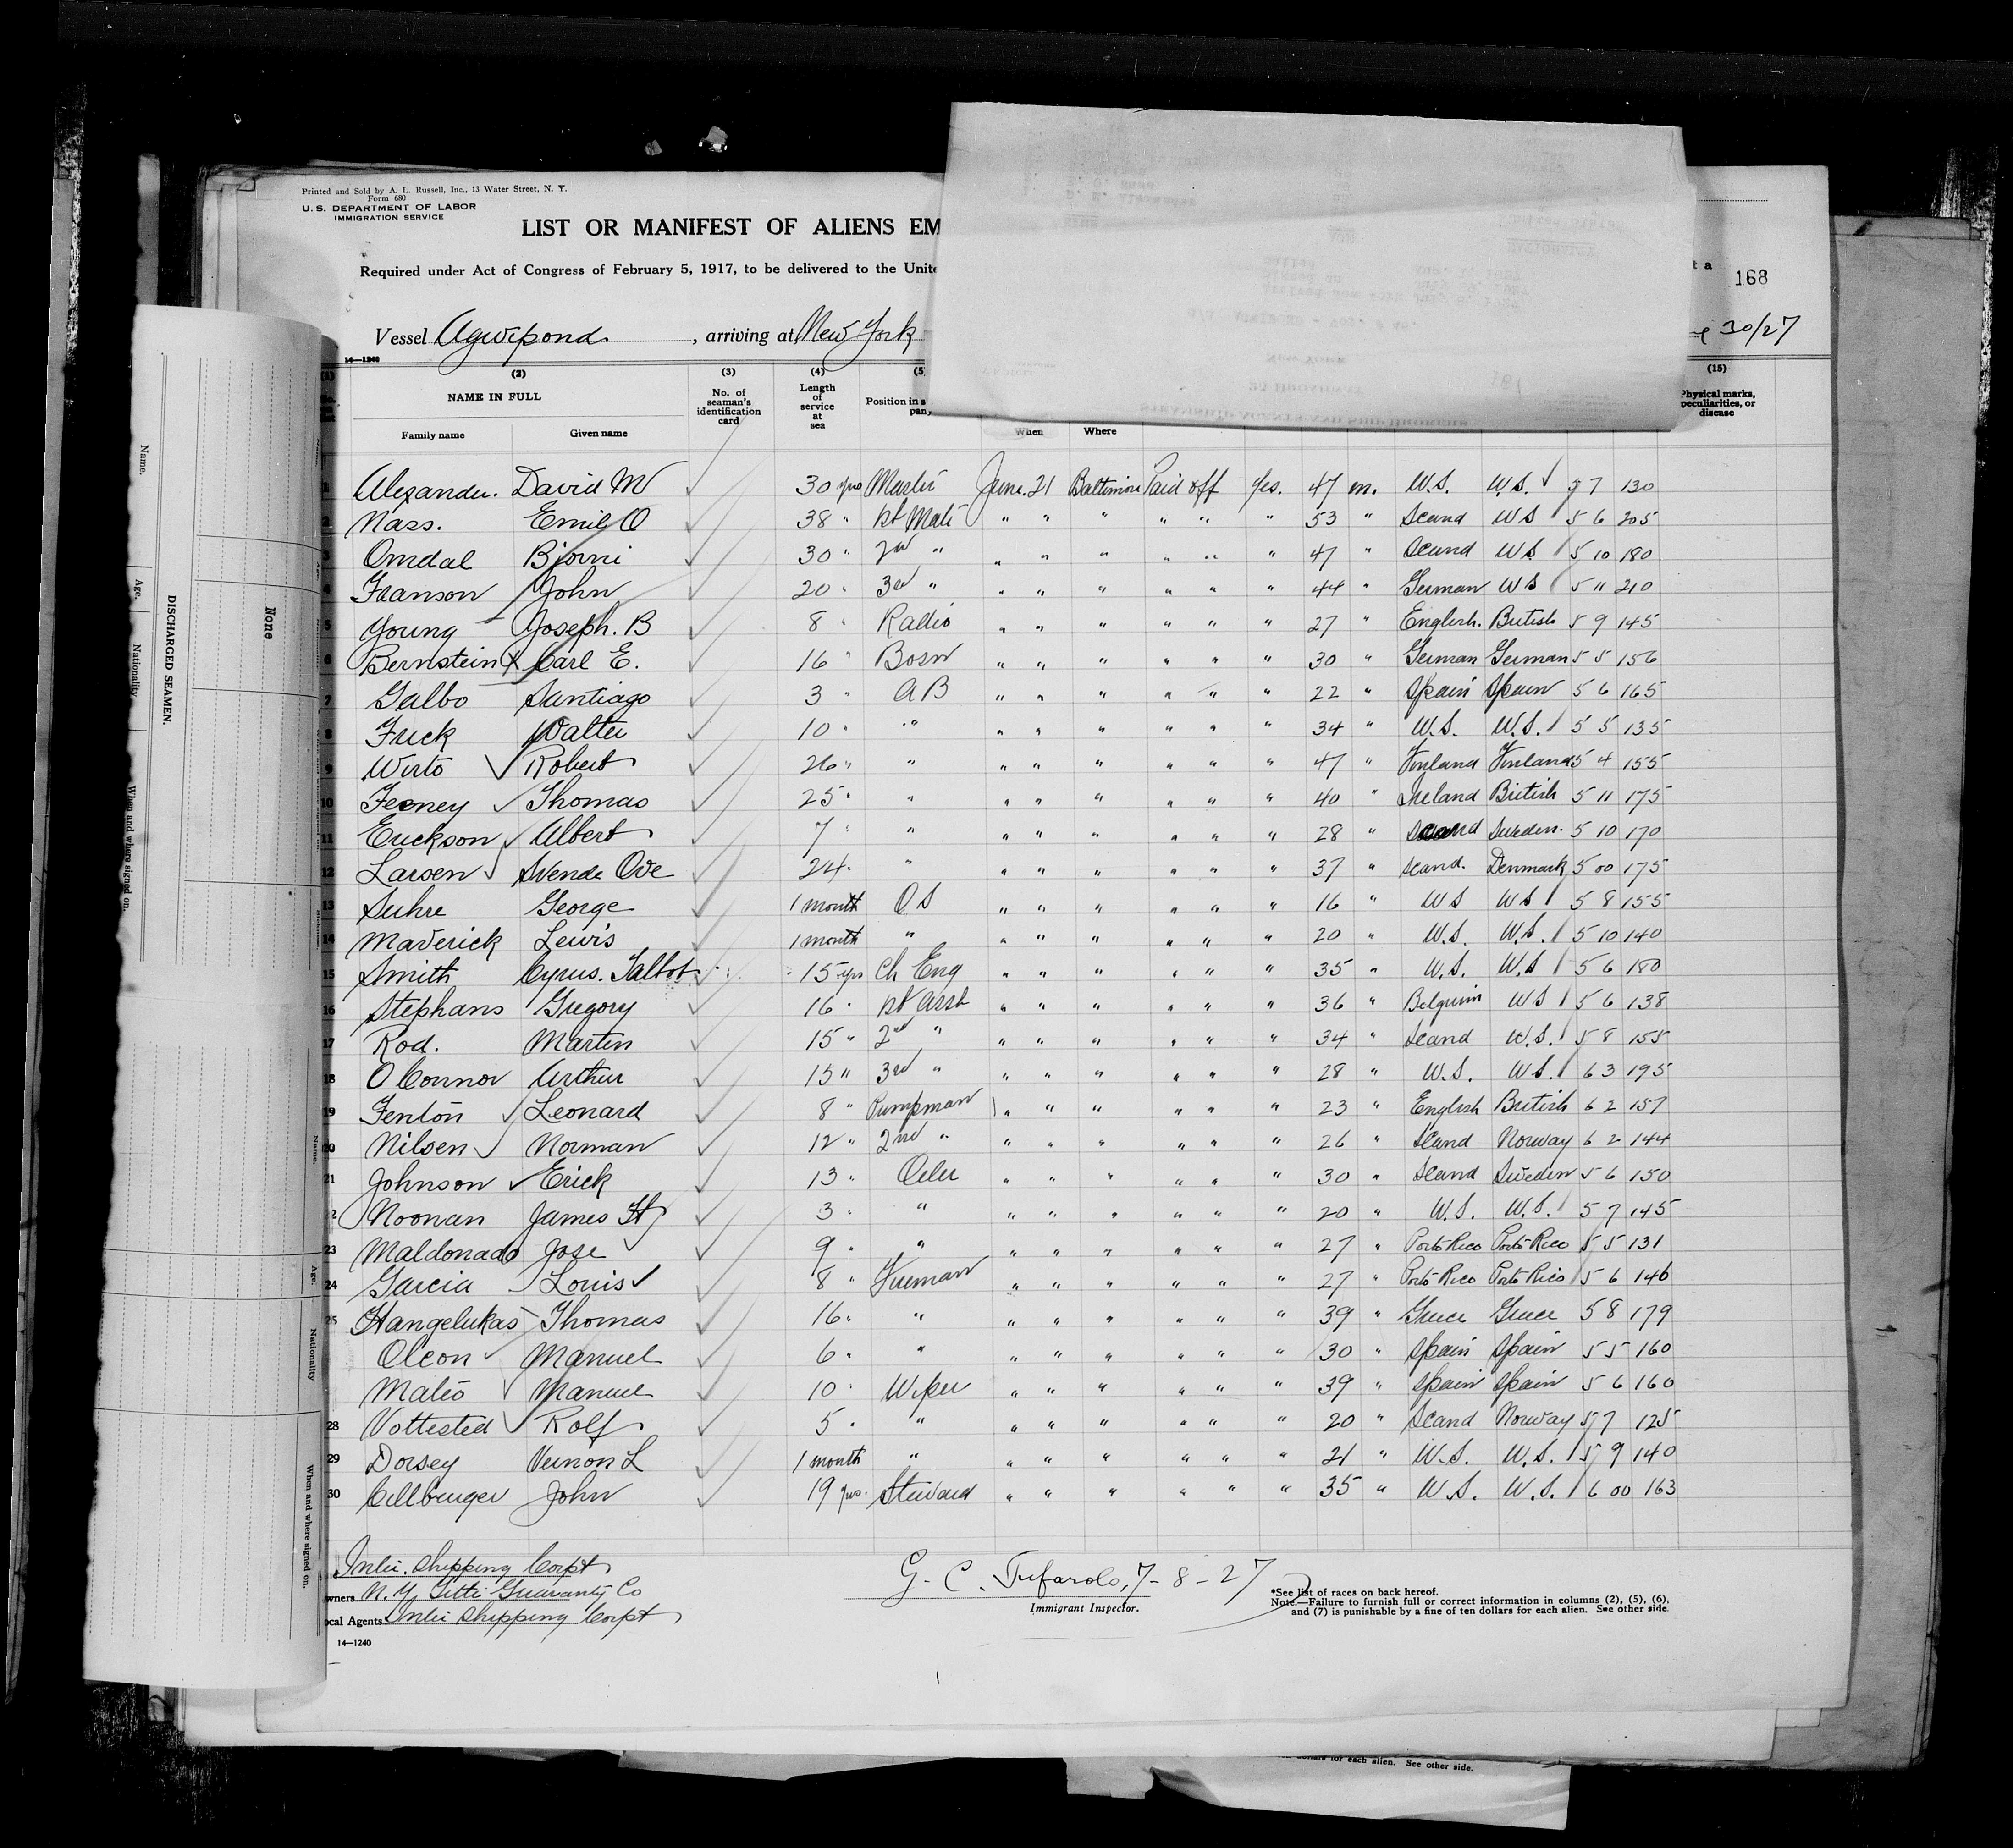 Printed and Sold by A. L. Russell, Inc., 13 Water Street, N. Y.
Form 680
U. S. DEPARTMENT OF LABOR
IMMIGRATION SERVICE
LIST OR MANIFEST OF ALIENS EM
Required under Act of Congress of February 5, 1917, to be delivered to the Unite
t a
168
Vessel Agwipond, arriving at New York
30/27
14—1240
(1) (2) (3) (4) (5 (15)
NAME IN FULL
No. of seaman's identification card
Length of service at sea
Position in s pany
Physical marks, peculiarities, or disease
Family name Given name When Where
1 Alexander. David M 30 yrs Master June. 21 Baltimore Paid off Yes. 47 m. U.S. U.S. 5 7 130
2 Nass. Emil O 38 " 1st Mate " " " " " " 53 " Scand US 5 6 205
3 Omdal Bjorni 30 " 2nd " " " " " " " 47 " Scand US 5 10 180
4 Franson John 20 " 3rd " " " " " " " 44 " German US 5 11 210
5 Young Joseph. B 8 " Radio " " " " " " 27 " English. British 5 9 145
6 Bernstein X Carl E. 16 " Bosn " " " " " " 30 " German German 5 5 156
7 Galbo Santiago 3 " AB " " " " " " 22 " Spain Spain 5 6 165
8 Walter 10 " " " " " " " " 34 " U.S. U.S. 5 5 135
9 Wirto Robert 26 " " " " " " " " 47 " Finland Finland 5 4 155
10 Feeney Thomas 25 " " " " " " " " 40 " Ireland British 5 11 175
11 Erickson Albert 7 " " " " " " " " 28 " Scand Sweden. 5 10 170
12 Larsen Svende Ove 24 " " " " " " " " 37 " Scand. Denmark 5 00 175
13 Suhre George 1 month OS " " " " " " 16 " US US 5 8 155
14 Maverick Lewis 1 month " " " " " " " 20 " U.S. U.S. 5 10 140
15 Smith Cyrus. Talbot 15 yrs Ch Eng " " " " " " 35 " U.S. U.S 5 6 180
16 Stephans Gregory 16 " 1st Asst " " " " " " 36 " Belguim US 5 6 138
17 Rod. Martin 15 " 2nd " " " " " " " 34 " Scand U.S. 5 8 155
18 O Connor Arthur 15 " 3rd " " " " " " " 28 " U.S. US. 6 3 195
19 Fenton Leonard 8 " Pumpman " " " " " " 23 " English British 6 2 157
20 Nilsen Norman 12 " 2nd " " " " " " " 26 " Scand Norway 6 2 144
21 Johnson Erick 13 " Oiler " " " " " " 30 " Scand Sweden 5 6 150
2 Noonan James H 3 " " " " " " " " 20 " U.S. U.S. 5 7 145
23 Maldonado Jose 9 " " " " " " " " 27 " Porto Rico Porto Rico 5 5 131
24 Garcia Louis 8 " Fireman " " " " " " 27 " Porto Rico Porto Rico 5 6 146
25 Hangelukas Thomas 16 " " " " " " " " 39 " Greece Greece 5 8 179
Oleon Manuel 6 " " " " " " " " 30 " Spain Spain 5 5 160
Mateo Manuel 10 " Wiper " " " " " " 39 " Spain Spain 5 6 160
28 Vottested Rolf 5 " " " " " " " " 20 " Scand Norway 5 7 125
29 Dorsey Vernon L 1 month " " " " " " " 21 " U.S. U.S. 5 9 140
30 John 19 yrs. Steward " " " " " " 35 " U.S. U.S. 6 00 163
Inter. Shipping Corpt
wners N.Y. Title Guaranty Co
ocal Agents Inter Shipping Corpt
14—1240
G. C. Tufarolo, 7-8-27
Immigrant Inspector.
*See list of races on back hereof.
Note.—Failure to furnish full or correct information in columns (2), (5), (6),
and (7) is punishable by a fine of ten dollars for each alien. See other side.
for each alien. See other side.
DISCHARGED SEAMEN.
Name. Age. Nationality When and where signed on.
None
Name. Age. Nationality When and where signed on.